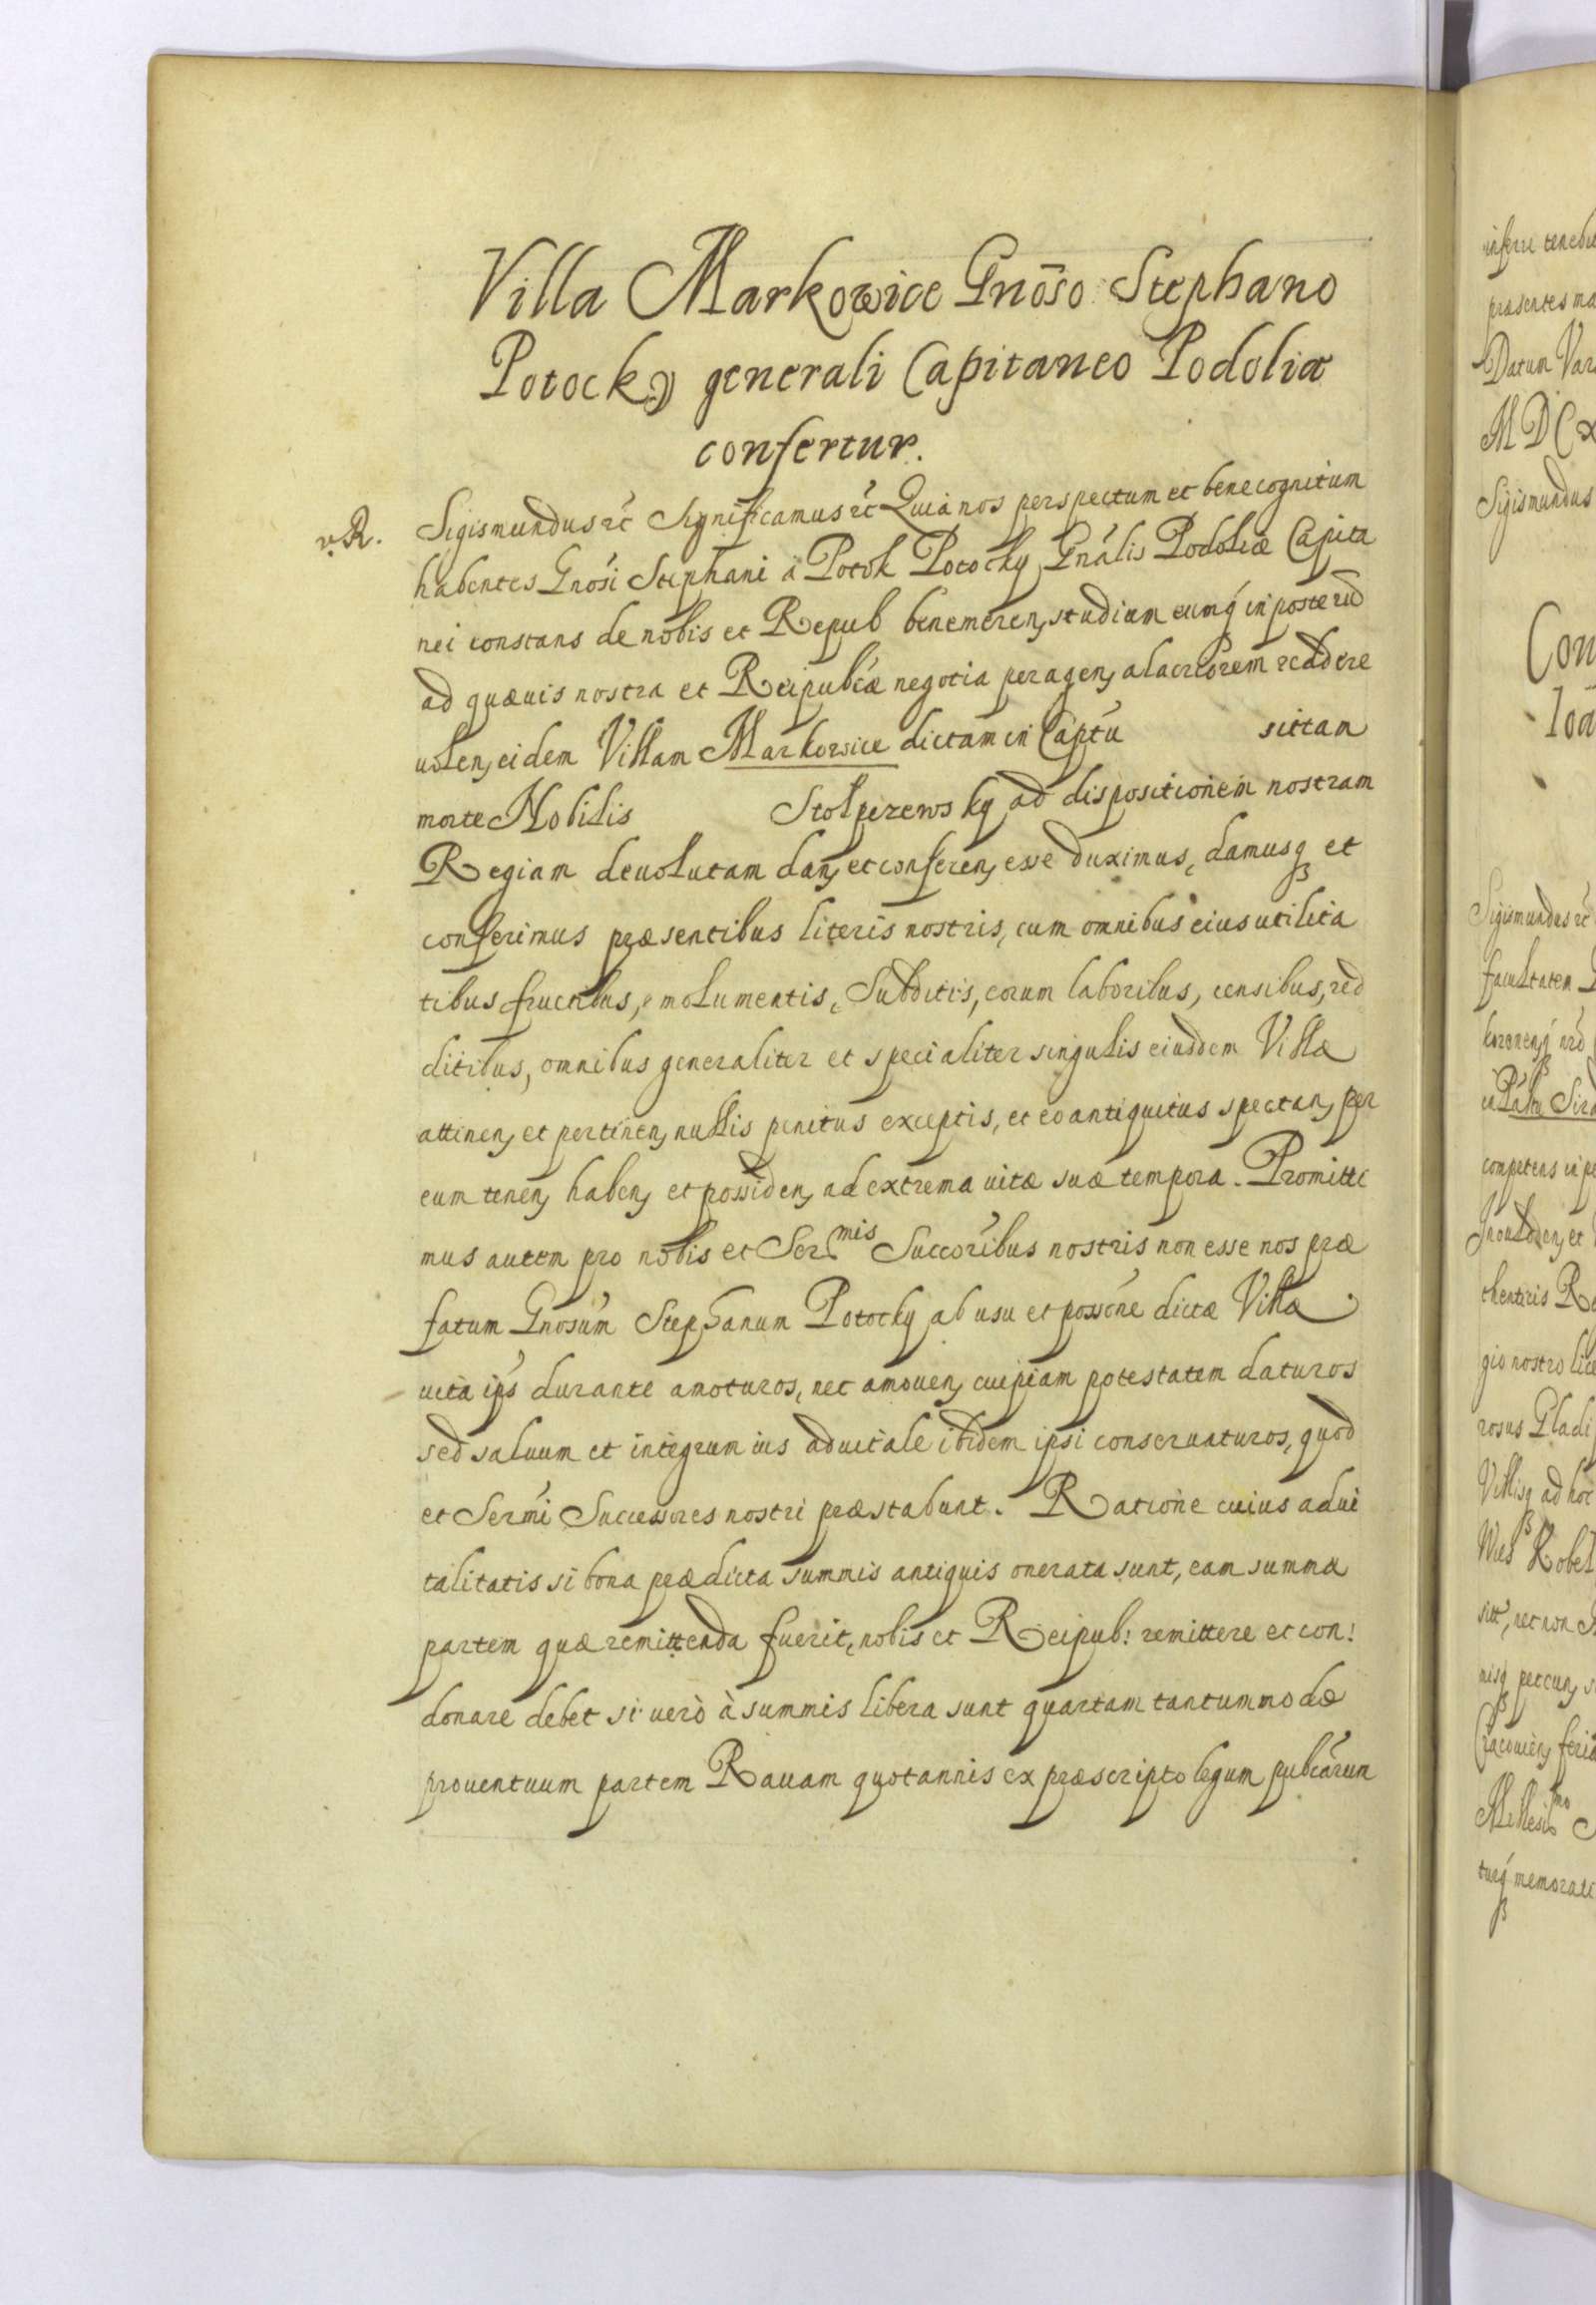 Villa Markowice Gnōso Stephano
Potocky generali Capitaneo Podoliæ
confertur.
v. R.
Sigismundus etc Significamus etc Quia nos perspectum et bene cognitum
habentes Gnosi Stephani à Potok Potocky Gnalis Podoliæ Capita
nei constans de nobis et Repub benemeren, studium eumq́ in posterū
ad quæuis nostra et Reipublcæ negotia peragen, alacriorem reddere
uolen, eidem Villam Markowice dictam in Captu sittam
morte Nobilis Stolperewsky ad dispositionem nostram
Regiam deuolutam dan, et conferen, esse duximus, damusq et
conferimus præsentibus literis nostris, cum omnibus eius utilita
tibus fructibus, emolumentis, Subditis, eorum laboribus, censibus, red
ditibus, omnibus generaliter et specialiter singulis eiusdem Villæ
attinen, et pertinen, nullis penitus exceptis, et eo antiquitus spectan, per
eum tenen, haben, et possiden, ad extrema uitæ suæ tempora. Promitti
mus autem pro nobis et Ser.mis Succoribus nostris non esse nos præ
fatum Gnosum Stephanum Potocky ab usu et possone dictæ Villæ
uita ips durante amoturos, nec amouen, cuipiam potestatem daturos
sed saluum et integrum ius aduitale ibidem ipsi conseruaturos, quod
et Sermi Successores nostri præstabunt. Ratione cuius adui
talitatis si bona prædicta summis antiquis onerata sunt, eam summæ
partem quæ remittenda fuerit, nobis et Reipub: remittere et con:
donare debet si uerò à summis libera sunt quartam tantummodo
prouentuum partem Rauam quotannis ex præscripto legum pubcarum
infere
præsentes
Datum
Sigismundus
Sigismundus etc
facultatem
competens in
gio nostro
rosus
ad hoc
nec non
memorati